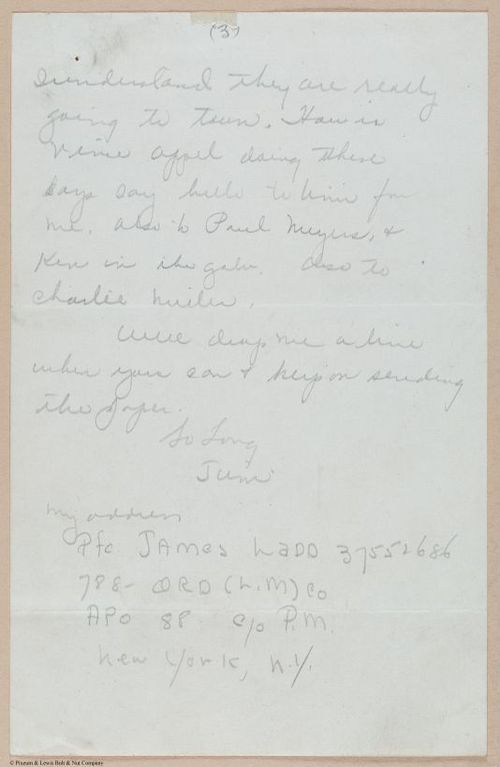 (3)
I understand they are really
going to town. How is
Vinie Appel doing these
days say hello to him for
me. also to Paul Meyers, &
Ken in the galv. also to
Charlie Miller.
Well drop me a line
when you can & keep on sending
the paper.
So Long
Jim
My address
Pfc JAMes LaDD 37552686
788- ORD (L.M) Co
APO 88 c/o P.M.
New York, N.Y.
© Pizzuto & Lewis Bolt & Nut Company